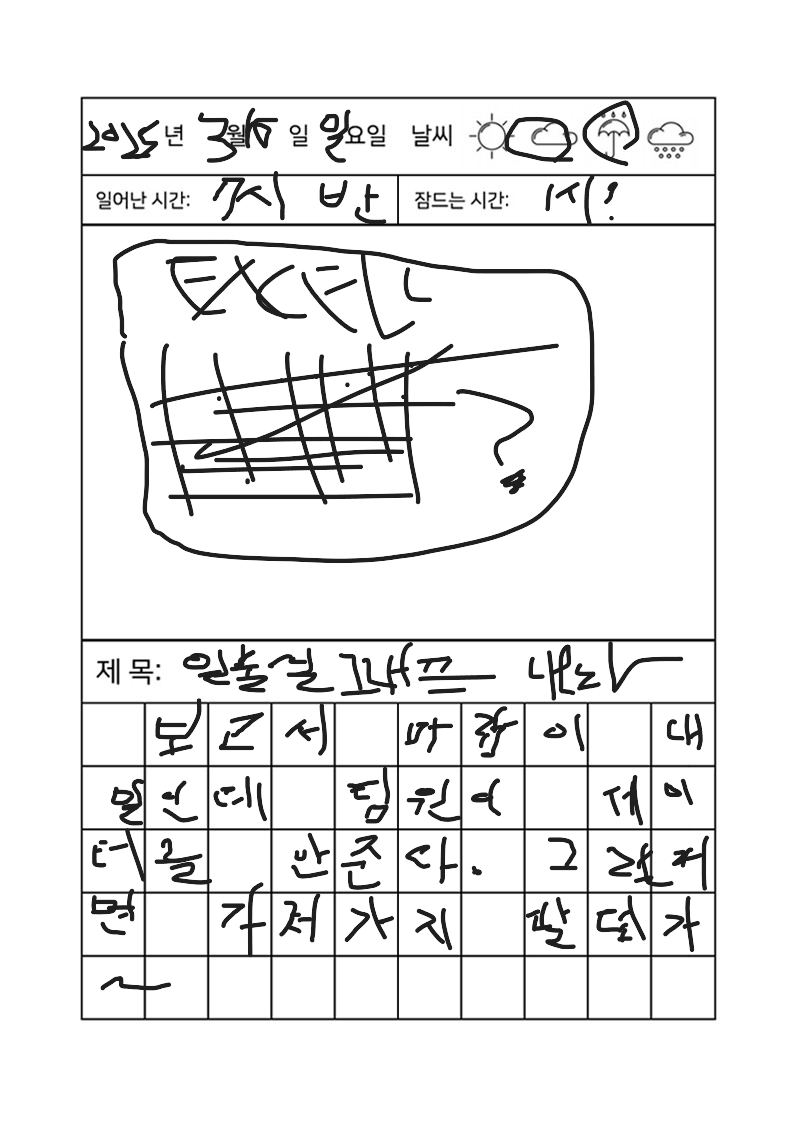 2025년 3월 일 일요일 날씨
일어난 시간: 7시 반 잠드는 시간: 1시?
EXCEL
?
제 목: 엑셀 그래프
보고서 마감이 내
일인데 팀원이 데이
터를 안준다. 그럴거
면 가져가지 말던가
~